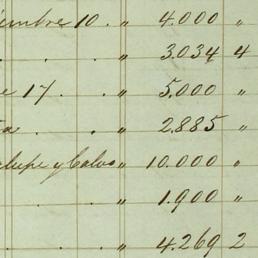 iembre 10. " 4.000 "
. . " 3.034 4
e 17. . " 5.000 "
. . " 2.885 "
alupe y Calvo " 10.000 "
. . " 1.900 "
. . " 4.269 2